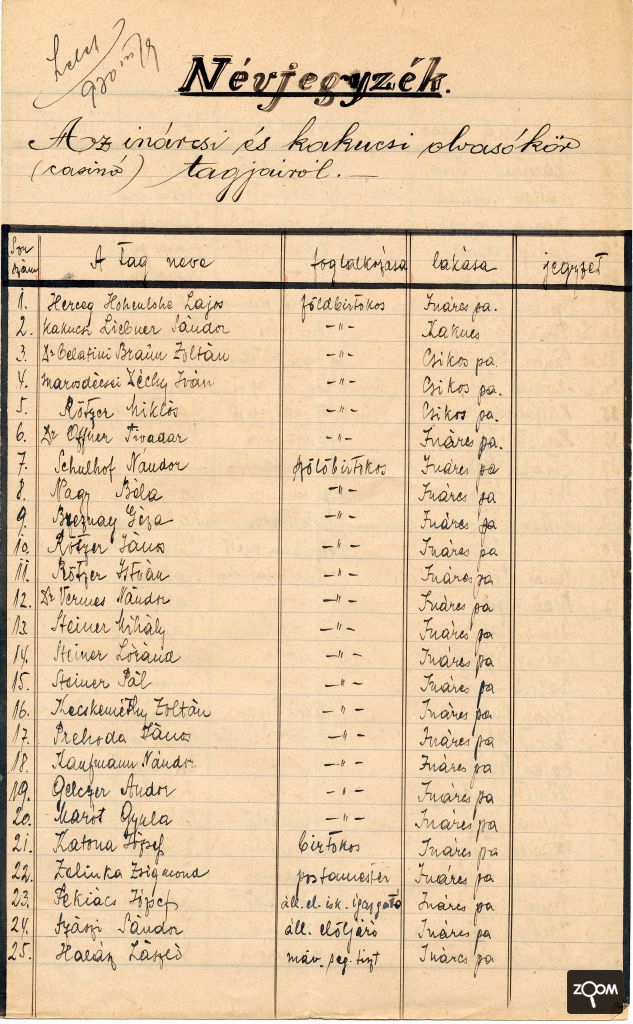 Névjegyzék.
Az inárcsi és kakucsi olvasókör
(casinó) tagjairól.—
Sor szám A tag neve foglalkozása lakása jegyzet
1. Herceg Hohenlohe Lajos földbirtokos Inárcs pa.
2. kakucsi Liebner Sándor —"— Kakucs
3. Dr Celatini Braün Zoltán —"— Csikos pa.
4. marosdécsei Zéchy Iván —"— Csikos pa.
5. Rötzer Miklós —"— Csikos pa.
6. Dr Offner Tivadar —"— Inárcs pa.
7. Schulhof Nándor földbirtokos Inárcs pa
8. Nagy Béla —"— Inárcs pa
9. Bzeznay Géza —"— Inárcs pa
10. Rötzer János —"— Inárcs pa
11. Rötzer István —"— Inárcs pa
12. Dr Vermes Nándor —"— Inárcs pa
13. Steiner Mihály —"— Inárcs pa
14. Steiner Lóránd —"— Inárcs pa
15. Steiner Pál —"— Inárcs pa
16. Kecskeméthy Zoltán —"— Inárcs pa
17. Prehoda János —"— Inárcs pa
18. Kaufmann Nándor —"— Inárcs pa
19. Gelczer Andor —"— Inárcs pa
20. Marót Gyula —"— Inárcs pa
21. Katona József birtokos Inárcs pa
22. Zelinka Zsigmond postamester Inárcs pa
23. Pekiács József áll. el. isk. igazgató Inárcs pa
24. Szászi Sándor áll. előljáró Inárcs pa
25. Halász László máv. seg. tiszt Inárcs pa
ZOOM